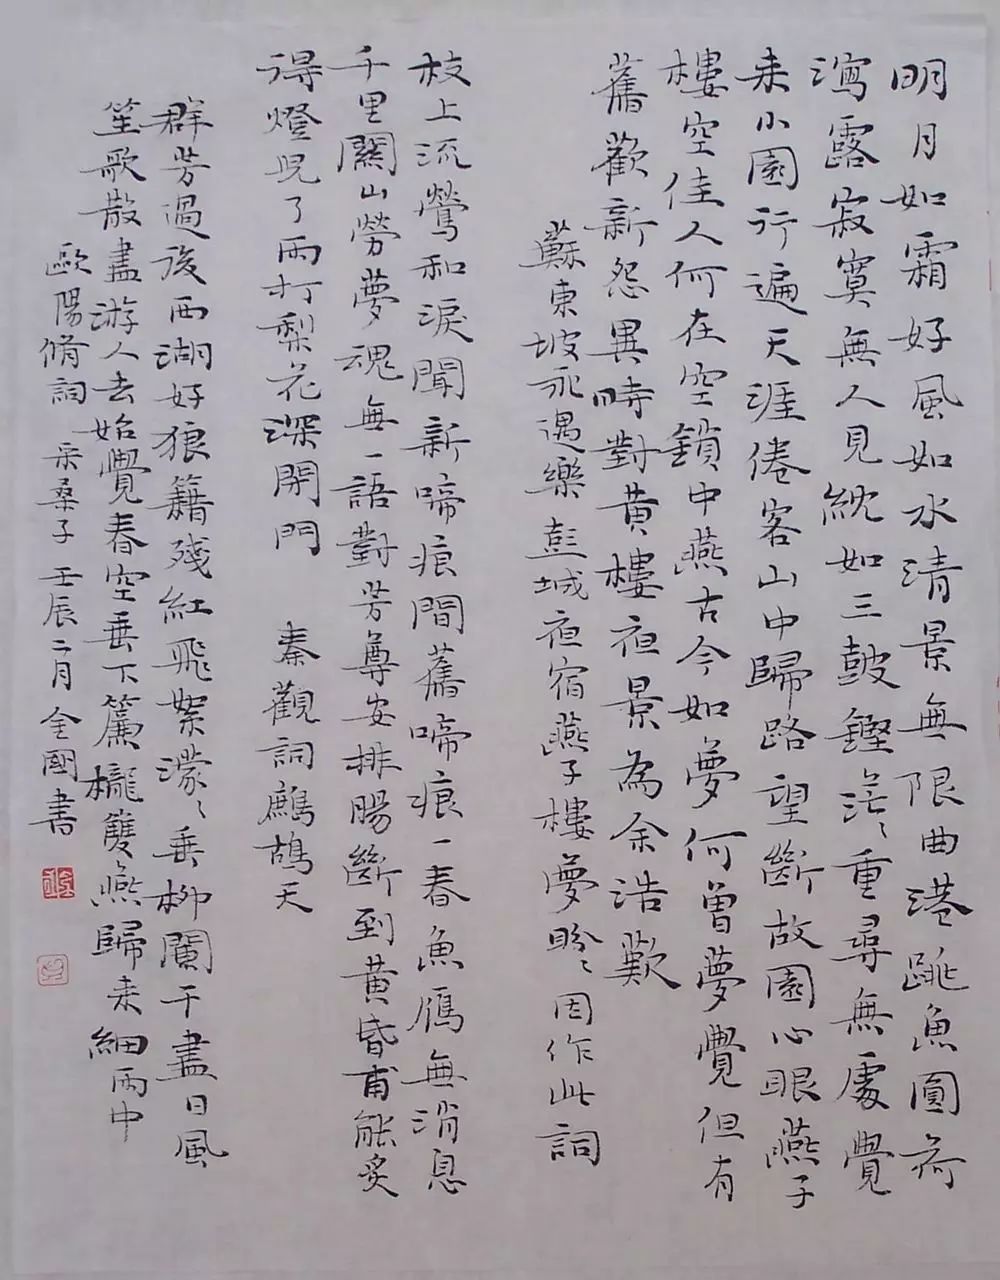 明月如霜好風如水清景無限曲港跳魚圓荷
瀉露寂寞無人見紞如三鼓鏗茫〻重尋無處覺
来小園行遍天涯倦客山中歸路望斷故園心眼燕子
樓空佳人何在空鎖中燕古今如夢何曾夢覺但有
舊歡新怨異時對黃樓夜景為余浩歎
蘇東坡永遇樂 彭城夜宿燕子樓夢盼〻因作此詞
枝上流鶯和淚聞新啼痕間舊啼痕一春魚雁無消息
千里關山勞夢魂無一語對芳尊安排腸斷到黃昏甫能炙
得燈兒了雨打梨花深閉門 秦觀詞鷓鴣天
群芳過後西湖好狼籍殘紅飛絮濛〻垂柳闌干盡日風
笙歌散盡游人去始覺春空垂下簾櫳雙燕歸来細雨中
歐陽脩詞 采桑子 壬辰二月 全國書